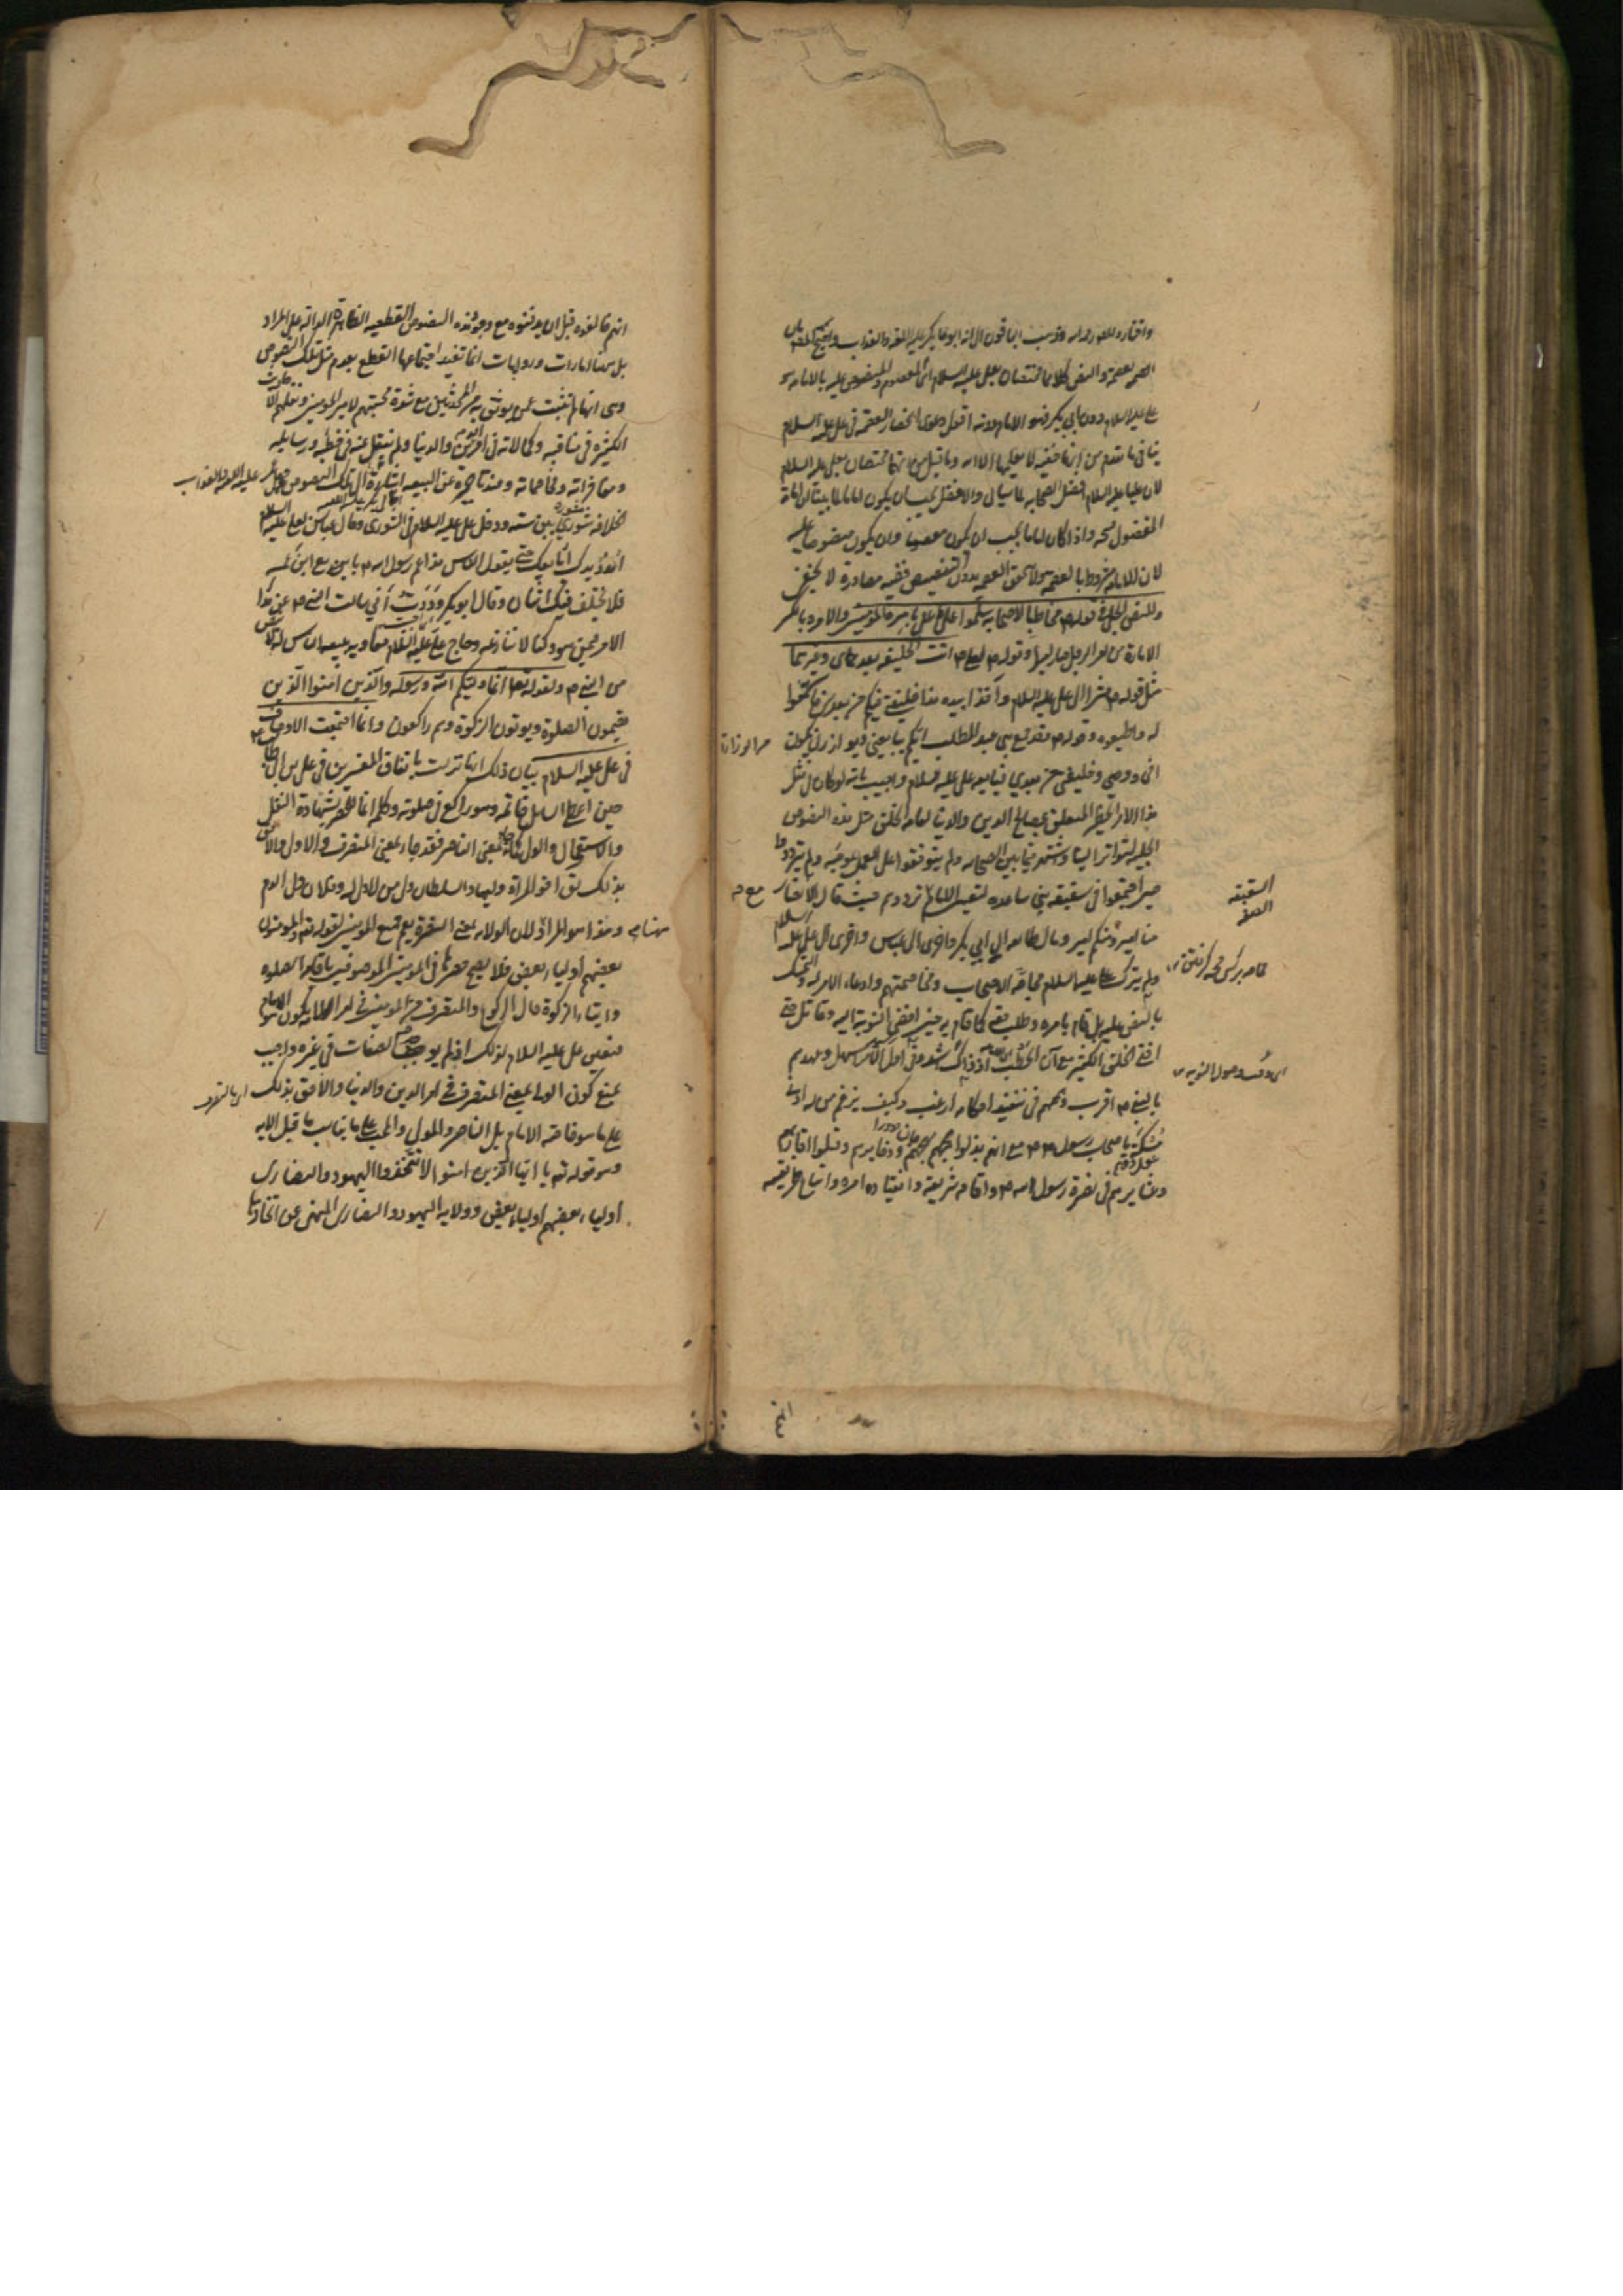 واختاره المصـ رحمه الله وذهب الباقون الى انه ابو بكر عليه اللعنة والعذاب
العصمة والنص كلاهما مختصان بعلي عليه السلام اى المعصوم والمنصوص عليه بالامامة هو
علي عليه السلام دون ابي بكر فهو الامام دونه اقول دعوى انحصار العصمة في علي عليه السلام
ينافي ما تقدم من انها خفية لا يعلمها الا الله وما قيل من انهما مختصان بعلي عليه السلام
لان عليا عليه السلام افضل الصحابة لما سيأتي والافضل يجب ان يكون اماما لما بينا ان امامة
المفضول قبيحة واذا كان اماما يجب ان يكون معصوما وان يكون منصوصا عليه
لان الامامة مشروط بالعصمة ولا تحقق العصمة بدون التنصيص ففيه مصادرة لا يخفى
وللنص الجلي في قوله م مخاطبا لاصحابه سلموا على علي بامرة المؤمنين والامرة بالكسر
الامارة من امر الرجل صار اميرا وقوله م لعلي م انت الخليفة بعدي وغيرهما
مثل قوله م مشيرا الى علي عليه السلام وآخذا بيده هذا خليفتي فيكم من بعدي فاسمعوا
له واطيعوه وقوله م وقد جمع بني عبد المطلب ايكم يبايعني ويوازرني يكن
من الوزارة
اخي ووصيي وخليفتي من بعدي فبايعه علي عليه السلام واجيب بانه لو كان في مثل
هذا الامر الخطير المتعلق بمصالح الدين والدنيا لعامة الخلق مثل هذه النصوص
الجلية لتواتر واشتهر فيما بين الصحابة ولم يتوقفوا على العمل بموجبه ولم يترددوا
حين اجتمعوا في سقيفة بني ساعدة لتعيين الامام ترددهم حيث قال الانصار
السقيفة
الصفة
منا امير ومنكم امير ومال طائفة الى ابي بكر واخرى الى العباس واخرى الى علي عليه السلام
ولم يترك علي عليه السلام محاجة الاصحاب ومخاصمتهم وادعاء الامر له والتمسك
بالنص عليه بل قام بامره وطلب حقه كما قام به حين افضى النوبة اليه وقاتل حتى
افنى الخلق الكثير مع ان الخطب اذ ذاك اشد وفي اول الامر اسهل وعهدهم
بالنبي م اقرب وهمهم في تنفيذ احكامه ارغب وكيف يزعم من له ادنى
مسكة باصحاب رسول الله م مع انهم بذلوا مهجهم وذخايرهم وقتلوا اقاربهم
وعشايرهم في نصرة رسول الله م واقامة شريعته وانقياد امره واتباع طريقته
انهم
انهم خالفوه قبل ان يدفنوه مع وجود هذه النصوص القطعية الظاهرة الدالة على المراد
بل هنا امارات وروايات انما تفيد اجتماعها القطع بعدم مثل تلك النصوص
وهى انها لم تثبت عمن يوثق به من المحدثين مع شدة محبتهم لامير المؤمنين ونقلهم الاحاديث
الكثيرة في مناقبه وكمالاته في امر الدين والدنيا ولم ينقل عنه في خطبه ورسايله
ومفاخراته ومخاصماته وعند تاخره عن البيعة اشارة الى تلك النصوص وجعل عمر
عليه اللعنة والعذاب
الخلافة شورى بين ستة ودخل علي عليه السلام في الشورى وقال عباس لعلي عليه السلام
امدد يدك ابايعك حتى يقول الناس هذا عم رسول الله م بايع مع ابن عمه
فلا يختلف فيك اثنان وقال ابو بكر وددت اني سالت النبي م عن هذا
الامر فيمن هو وكنا لا ننازعه وحاج علي عليه السلام معاوية ببيعة الناس له لا بنص
من النبي م ولقوله تعا انما وليكم الله ورسوله والذين آمنوا الذين
يقيمون الصلوة ويؤتون الزكوة وهم راكعون وانما اجتمعت الاوصاف
في علي عليه السلام بيان ذلك انها نزلت باتفاق المفسرين في علي بن ابي طالب
حين اعطى السائل خاتمه وهو راكع في صلوته وكلمة انما للحصر بشهادة النقل
والاستعمال والولي كما جاء بمعنى الناصر فقد جاء بمعنى المتصرف والاولى والاحق
بذلك يق اخو المراة وليها والسلطان ولي من لا ولي له وفلان ولي الدم
وهذا هو المراد لان الولاية بمعنى النصرة يعم جميع المؤمنين لقوله تعا والمؤمنون
بعضهم اولياء بعض فلا يصح حصرها في المؤمنين الموصوفين باقامة الصلوة
وايتاء الزكوة حال الركوع والمتصرف من المؤمنين في امر الامة يكون هو الامام
فتعين علي عليه السلام لذلك اذ لم يوجد هذه الصفات في غيره واجيب
بمنع كون الولي بمعنى المتصرف في امر الدين والدنيا والاحق بذلك
اى بالتصرف
على ما هو خاصة الامام بل الناصر والمولى والمحب على ما يناسب ما قبل الاية
وهو قوله تعا يا ايها الذين امنوا لا تتخذوا اليهود والنصارى
اولياء بعضهم اولياء بعض وولاية اليهود والنصارى المنهى عن اتخاذها